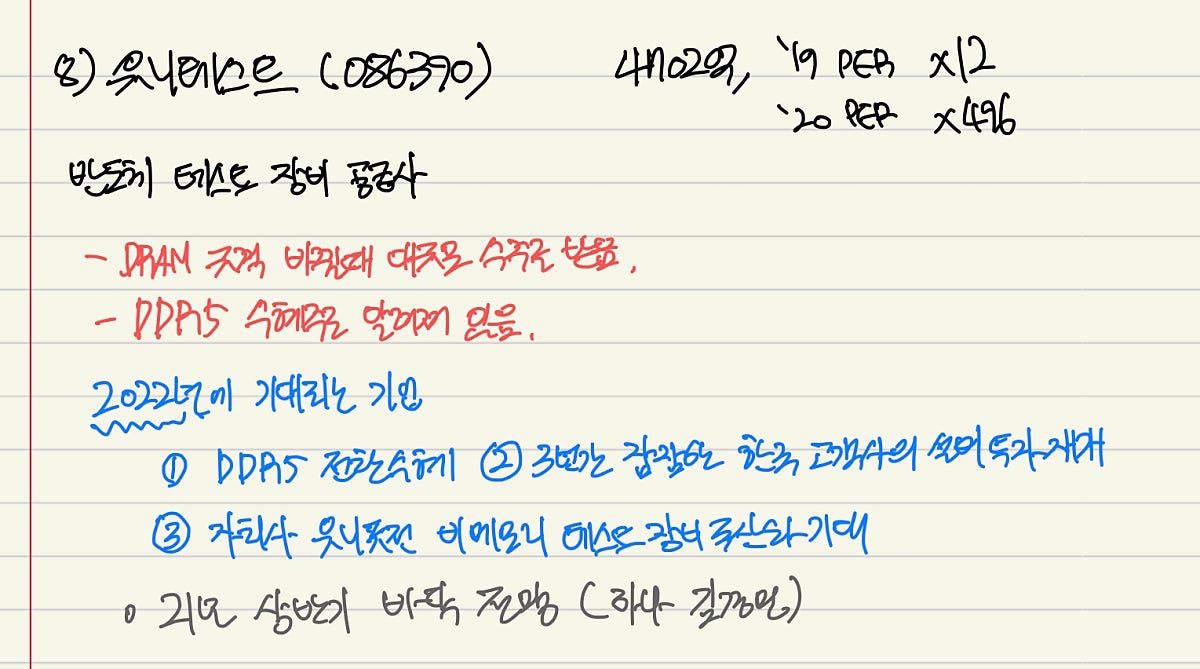 8) 유니테스트 (086390) 4702억, '19 PER x12
'20 PER x496
반도체 테스트 장비 공급사
- DRAM 규격 바뀔때 대규모 수주를 받음.
- DDR5 수혜주로 알려져 있음.
2022년에 기대되는 기업
① DDR5 전환수혜 ② 3년간 잠잠한 한국 고객사의 설비투자 재개
③ 자회사 유니퓨전 비메모리 테스트 장비 국산화 기대
• 21년 상반기 바닥 전망 (하나 김경민)